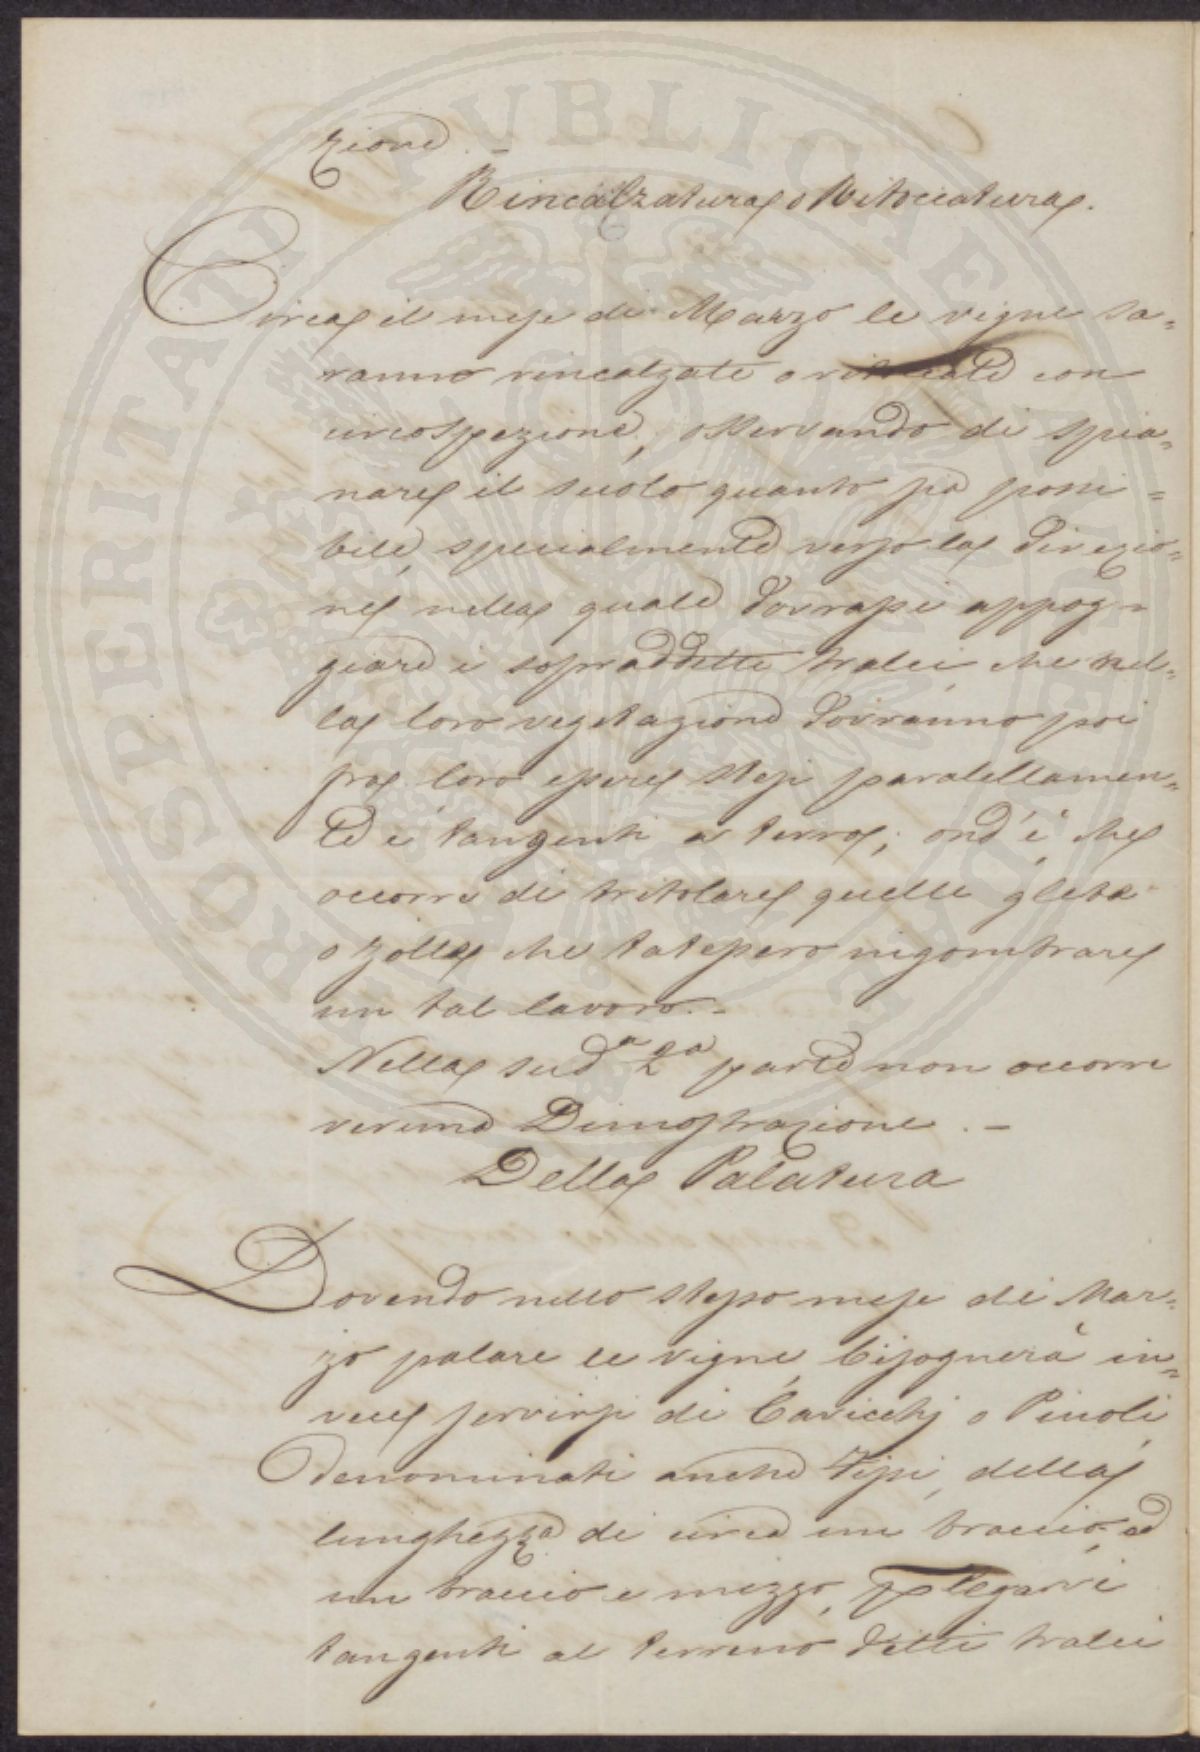 zione. –
Rincalzatura, o Ritoccatura.
Circa il mese di Marzo le vigne sa=
ranno rincalzate o ritoccate con
circospezione, osservando di spia=
nare il suolo quanto sia possi=
bile, specialmente verso la direzio=
ne nella quale dovrassi appog=
giare i sopraddetti tralci, che nel=
la loro vegetazione dovranno poi
fra loro essere stesi paralellamen=
te e tangenti a terra; ond'è, che
occorre di tritolare quelle glebe
o zolle che potessero ingombrare
un tal lavoro. –
Nella sud.a 2.a parte non occorre
veruna Dimostrazione. –
Della Palatura
Dovendo nello stesso mese di Mar=
zo palare le vigne, bisognerà in=
vece servirsi di Cavicchj o Piuoli
denominati anche Tipi, della
lunghezza di circa un braccio, ad
un braccio e mezzo, p legarvi
tangenti al terreno detti tralci
PROSPERITATI PVBLICAE AVGENDAE